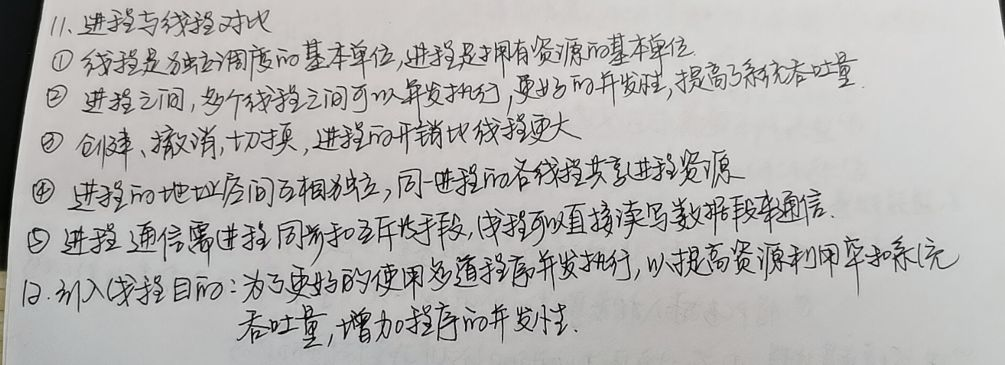 11. 进程与线程对比
① 线程是独立调度的基本单位,进程是拥有资源的基本单位.
② 进程之间,多个线程之间可以并发执行,更好的并发性,提高了系统吞吐量.
③ 创建、撤消,切换,进程的开销比线程更大
④ 进程的地址空间互相独立,同一进程的各线程共享进程资源
⑤ 进程通信需进程同步和互斥手段,线程可以直接读写数据段来通信.
12. 引入线程目的:为了更好的使用多道程序并发执行,以提高资源利用率和系统
吞吐量,增加程序的并发性.